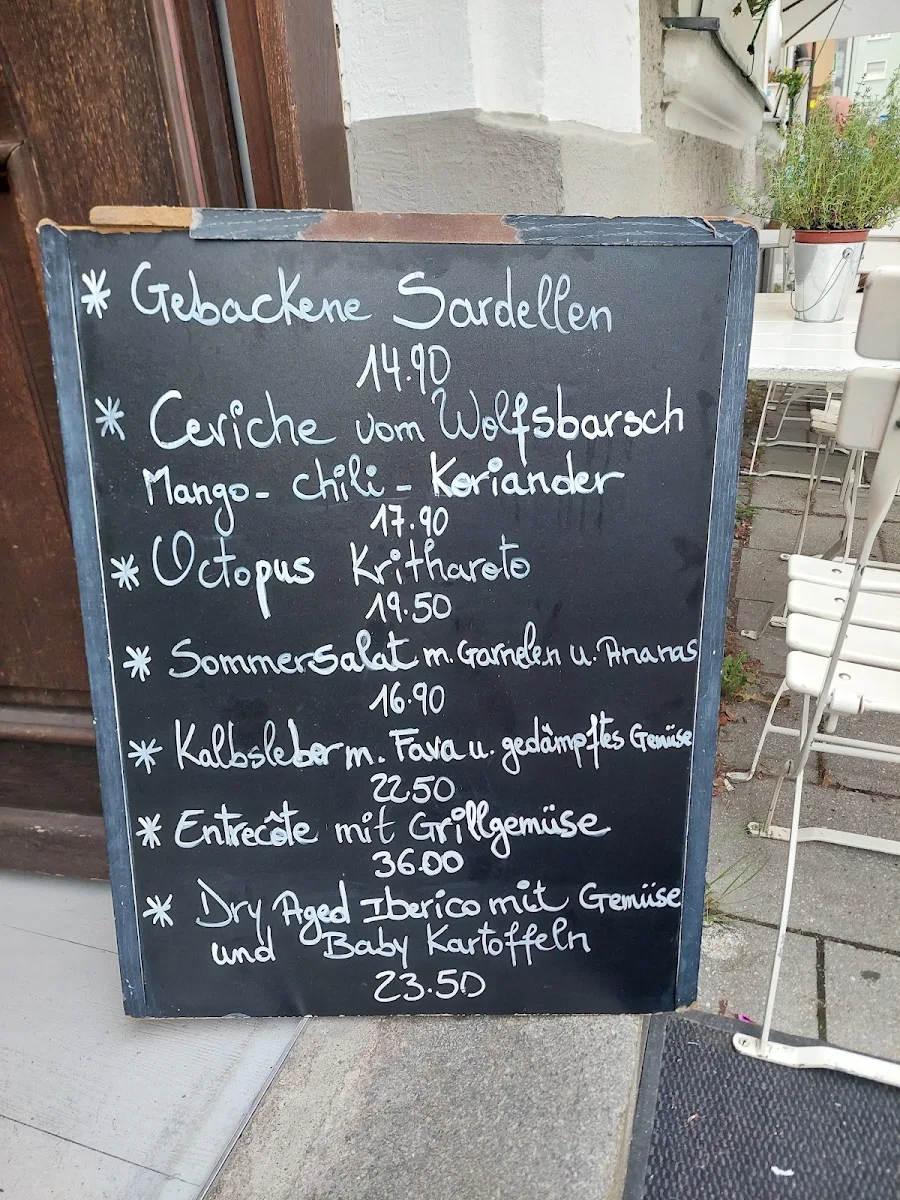 * Gebackene Sardellen
14.90
* Ceviche vom Wolfsbarsch
Mango - Chili - Koriander
17.90
* Octopus Kritharoto
19.50
* Sommersalat m. Garnelen u. Ananas
16.90
* Kalbsleber m. Fava u. gedämpftes Gemüse
22.50
* Entrecôte mit Grillgemüse
36.00
* Dry Aged Iberico mit Gemüse
und Baby Kartoffeln
23.50